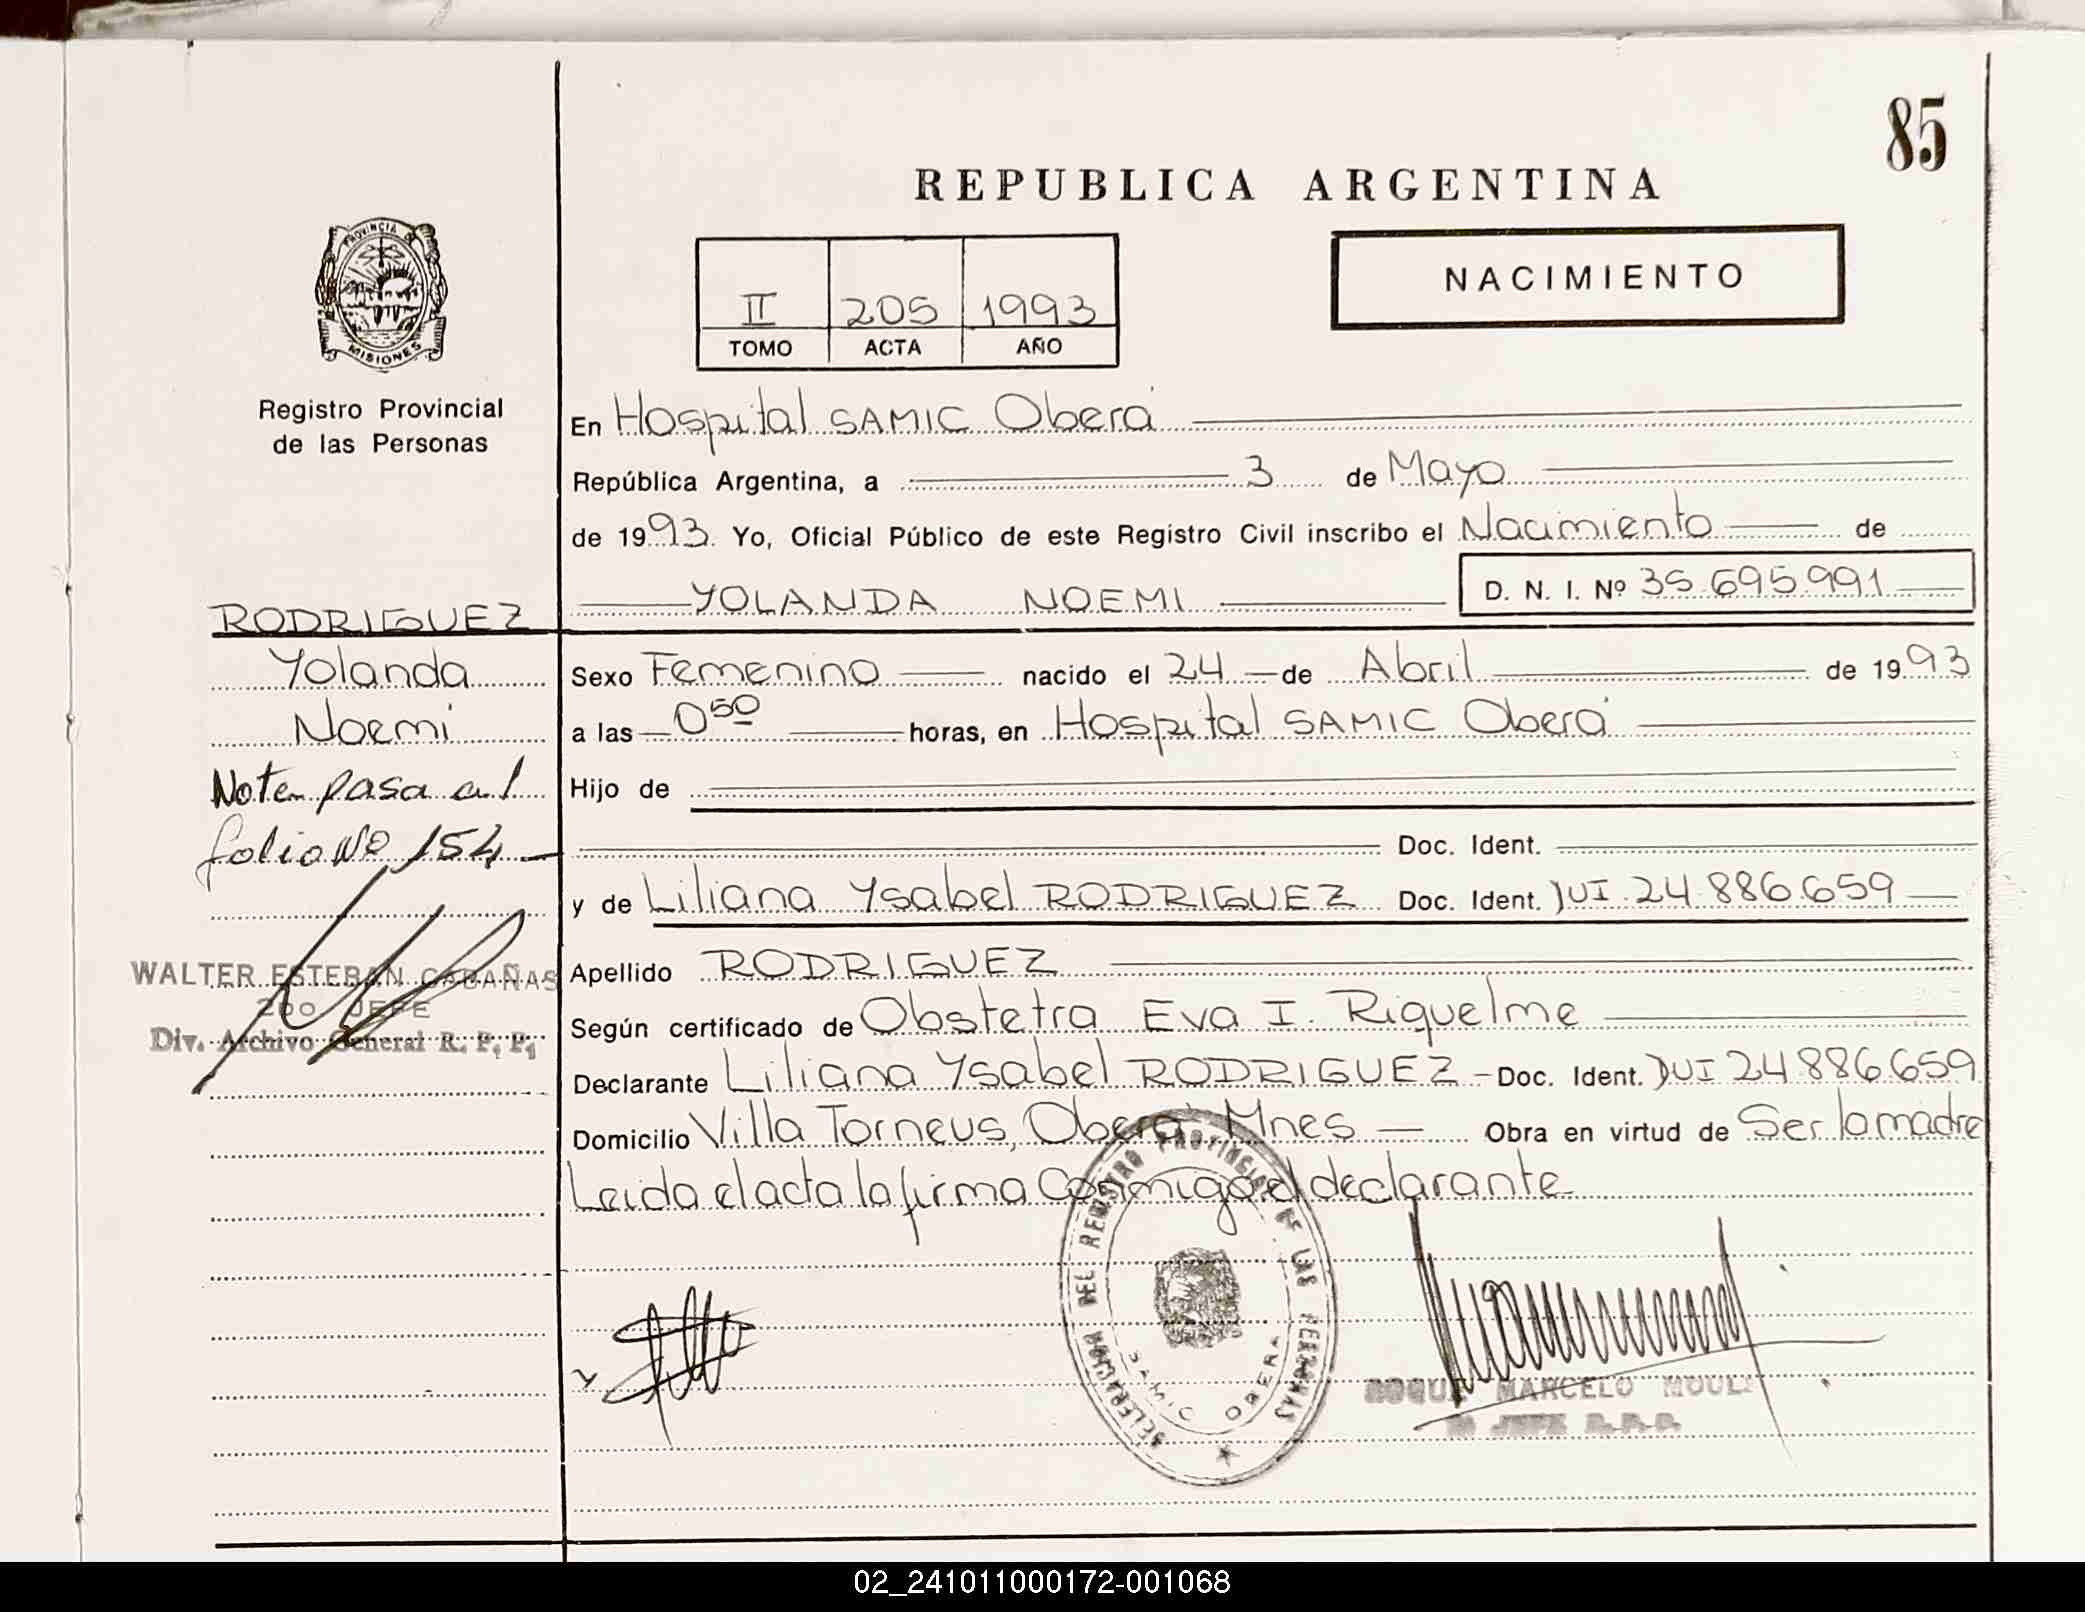 85
REPUBLICA ARGENTINA
PROVINCIA DE
MISIONES
Registro Provincial
de las Personas
II 205 1993
TOMO ACTA AÑO
NACIMIENTO
En Hospital SAMIC Oberá
República Argentina, a 3 de Mayo
de 1993. Yo, Oficial Público de este Registro Civil inscribo el Nacimiento de
YOLANDA NOEMI D. N. I. Nº 35.695.991
RODRIGUEZ
Yolanda
Noemi
Nota pasa al
folio Nº 154
WALTER ESTEBAN CABAÑAS
2do JEFE
Div. Archivo General R. P. P.
Sexo Femenino nacido el 24 de Abril de 1993
a las 0 50 horas, en Hospital SAMIC Oberá
Hijo de
Doc. Ident.
y de Liliana Ysabel RODRIGUEZ Doc. Ident. DUI 24.886.659
Apellido RODRIGUEZ
Según certificado de Obstetra Eva I. Riquelme
Declarante Liliana Ysabel RODRIGUEZ Doc. Ident. DUI 24886.659
Domicilio Villa Torneus, Oberá Mnes Obra en virtud de Ser la madre
Leida el acta la firma Conmigo el declarante
DELEGACION DEL REGISTRO PROVINCIAL DE LAS PERSONAS
SAMIC OBERA
ROQUE MARCELO
JEFE
02_241011000172-001068